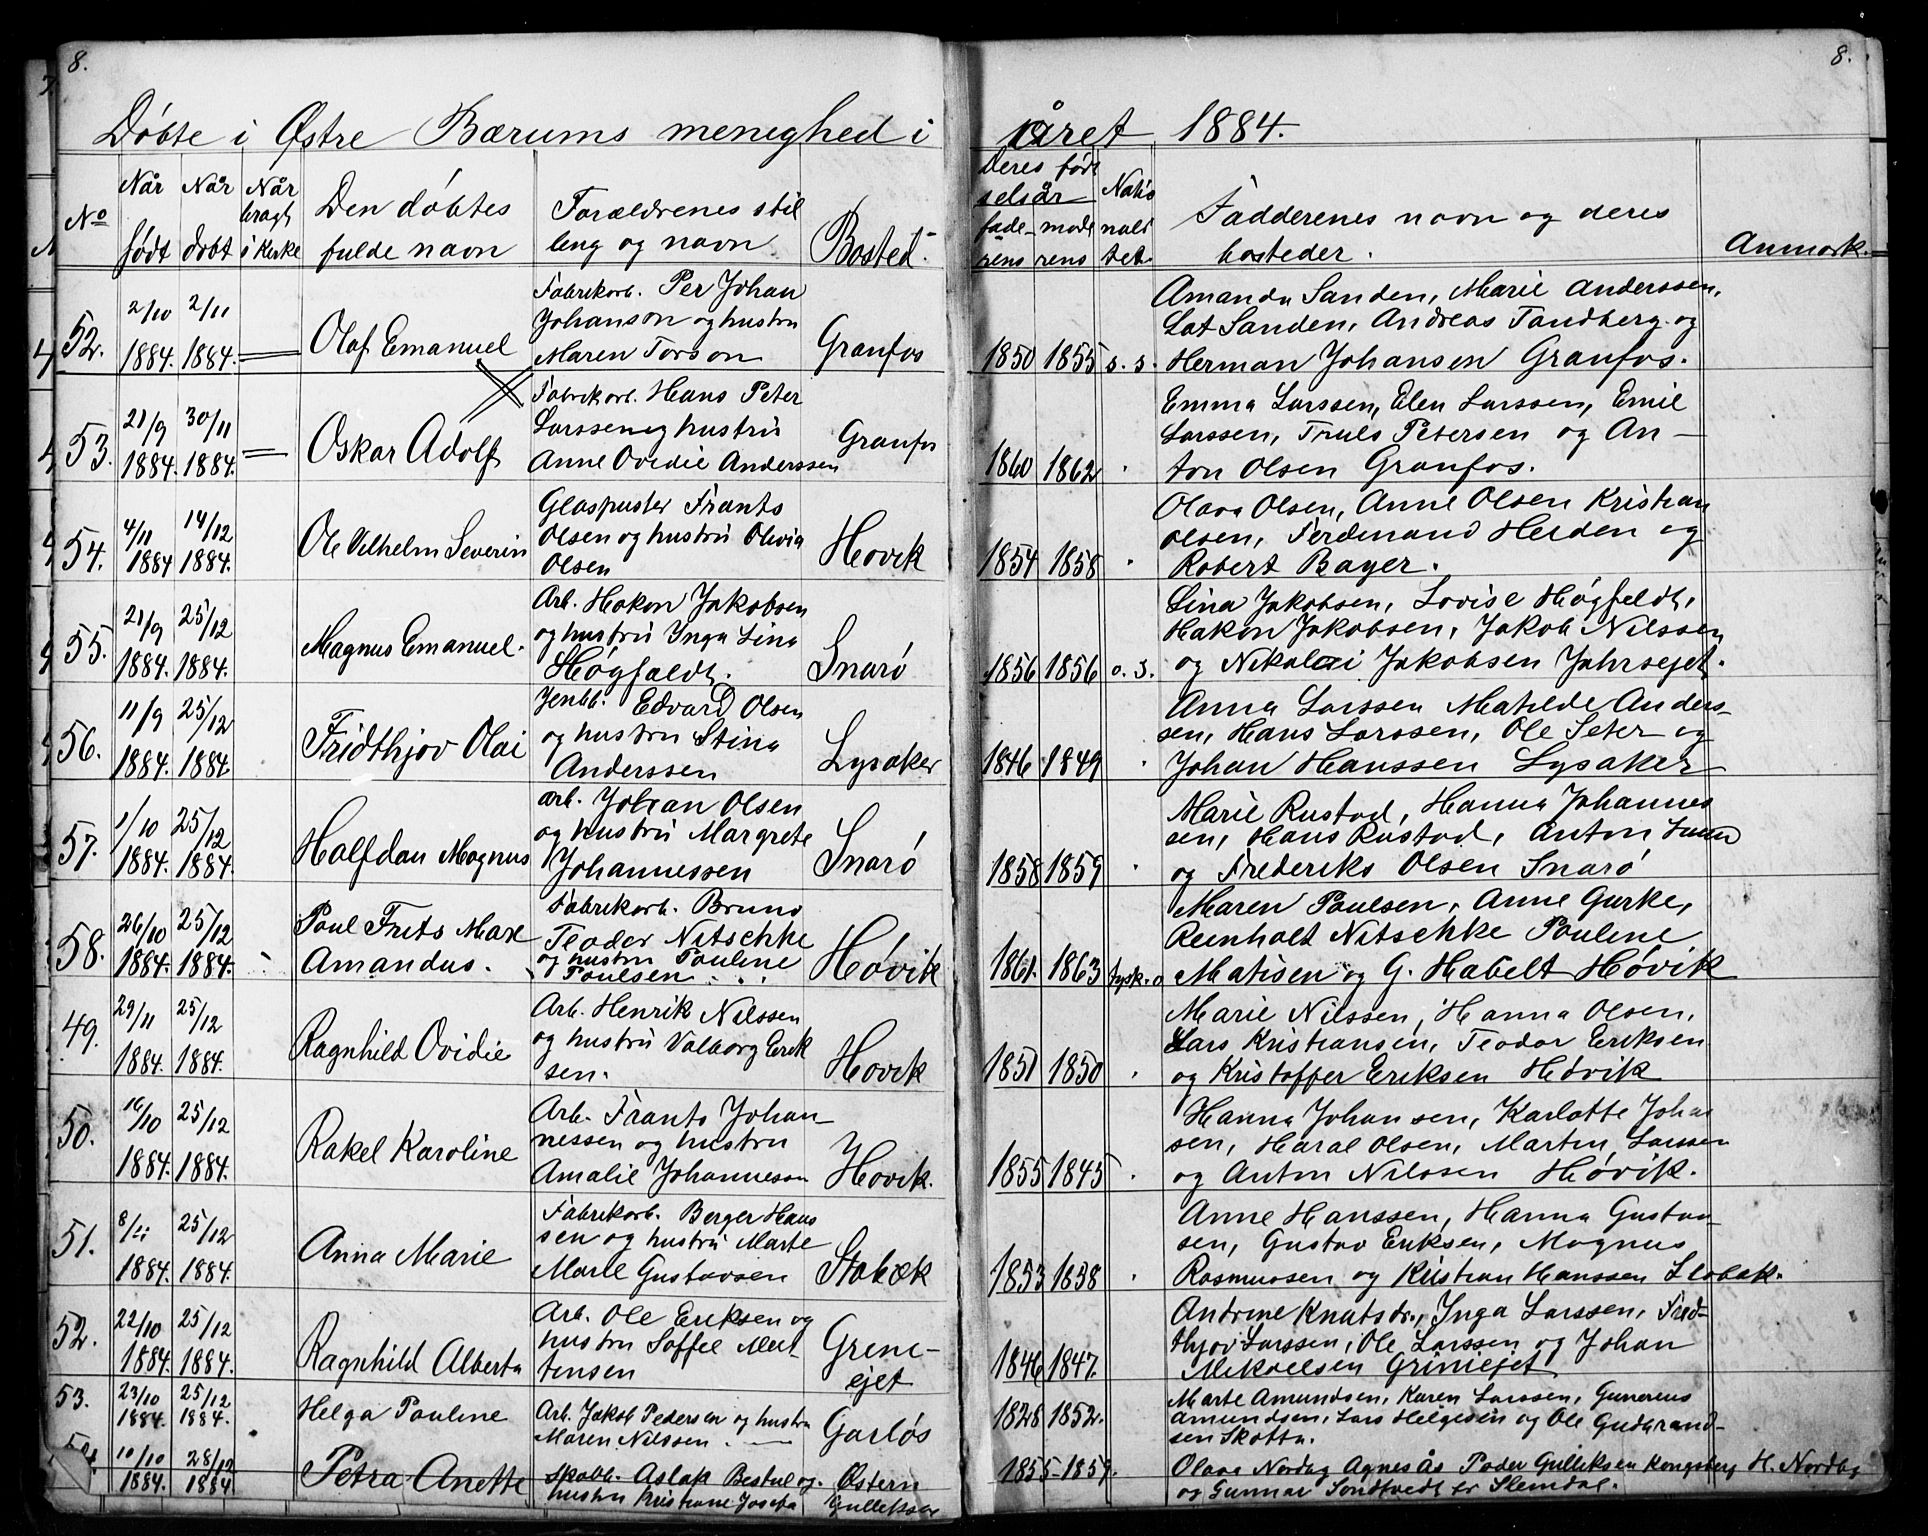 8.
8.
Döbte i Østre Bærums menighed i året 1884.
No
Når födt
Når dobt
Når bragt i Kirke
Den döbtes fulde navn
Forældrenes stilleng og navn
Bosted.
Deres födselsår
faderens
moderens
Nationalitet.
Fadderenes navn og deres bosteder.
Anmærk.
52. 2/10 1884. 2/11 1884. Olaf Emanuel
Fabrikarb. Per Johan
Johanson og hustru
Maren Torson
Granfos
1850 1855 s. s.
Amanda Sanden, Marie Anderssen,
Lat Sanden, Andreas Tandberg og
Herman Johansen Granfos.
53. 21/9 1884. 30/11 1884. Oskar Adolf
Fabrikarb. Hans Peter
Larssen og hustru
Anne Ovidie Anderssen
Granfos
1860 1862
Emma Larssen, Elen Larssen, Emil
Larssen, Truls Petersen og An-
ton Olsen Granfos.
54. 4/11 1884 14/12 1884. Ole Vilhelm Severin
Glaspuster Frants
Olsen og hustru Olivia
Olsen
Hovik
1854 1858
Olava Olsen, Anne Olsen Kristian
Olsen, Ferdinand Heiden og
Robert Bayer.
55. 21/9 1884. 25/12 1884. Magnus Emanuel.
Arb. Hakon Jakobsen
og hustru Ynga Lina
Högfaldt.
Snarö
1856 1856 o. s.
Lina Jakobsen, Lovise Högfeldt,
Hakon Jakobsen, Jakob Nilssen
og Nikolai Jakobsen
56. 11/9 1884. 25/12 1884. Fridthjov Olai
Jenbb. Edvard Olsen
og hustru Stina
Anderssen
Lysaker
1846 1849
Anna Larssen Matilde Anders-
sen, Hans Larssen, Ole Seter og
Johan Hanssen Lysaker
57. 1/10 1884. 25/12 1884. Halfdan Magnus
Arb. Johan Olsen
og hustru Margrete
Johannessen
Snarö
1858 1859
Marie Rustad, Hanna Johannes
sen, Hans Rustad, Anton
og Frederiks Olsen Snarö
58. 26/10 1884. 25/12 1884. Paul Frits Max
Amandus.
Fabrikarb. Bruno
Teodor Nitschke
og hustru Pauline
Poulsen
Hövik
1861. 1863 tysk. o
Maren Poulsen, Anne Gurke,
Reinholt Nitschke Pauline
Matisen og G. Habelt Hövik
49. 29/11 1884. 25/12 1884. Ragnhild Ovidie
Arb. Henrik Nilssen
og hustru Valborg Erik
sen.
Hovik
1851 1850
Marie Nilssen, Hanna Olsen,
Lars Kristiansen, Teodor Eriksen
og Kristoffer Eriksen Hövik
50. 16/10 1884. 25/12 1884. Rakel Karoline
Arb. Frants Johan
nessen og hustru
Amalie Johannesson
Hovik.
1855 1845
Hanna Johansen, Karlotte Johan
sen, Haral Olsen, Martin Larssen
og Anton Nilssen Hövik.
51. 8/11 1884. 25/12 1884. Anna Marie
Fabrikarb. Berger Hans
sen og hustru Marte
Marie Gustavsen
Stabæk
1853 1858
Anne Hanssen, Hanna Gustav-
sen, Gustav Eriksen, Magnus
Rasmussen og Kristian Hanssen Stabæk.
52. 22/10 1884. 25/12 1884. Ragnhild Alberta
Arb. Ole Eriksen og
hustru Soffie Mar-
tensen
Grini-
ejet
1846 1847.
Andrine Knutsdr., Inga Larssen, Frid-
thjov Larssen, Ole Larssen og Johan
Mikaelsen Griniejet
53. 23/10 1884. 25/12 1884. Helga Pauline
Arb. Jakob Pedersen og hustru
Maren Nilssen.
Garlös
1828 1852.
Marte Amundsen, Karen Larssen, Gunerius
Amundsen, Lars Helgesen og Ole Gudbrand-
sen Skotta.
54. 10/10 1884. 28/12 1884 Petra Anette
Skobb. Aslak Bestul og
hustru Kristiane Josefa
Østern
Gulleksen
1855-1859.
Olava Nordby Agnes Ås Peder Gulleksen Kongsberg H. Nordby
og Gunnar Sondtvedt er Slemdal.